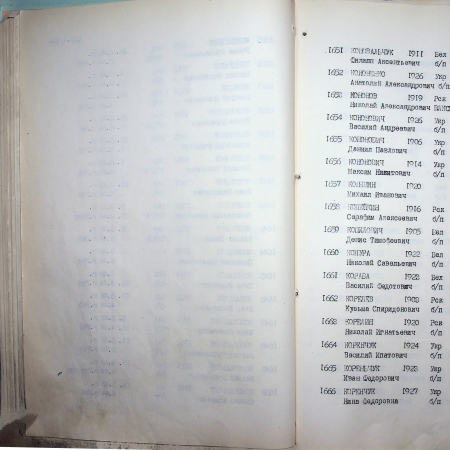 1651 КОНОВАЛЬЧУК 1911 Бел
Филипп Авсентьевич б/п
1652 КОНОНЕНКО 1926 Укр
Анатолий Александрович б/п
1653 КОНОНОВ 1919 Рси
Николай Александрович ВЛКСМ
1654 КОНОНОВИЧ 1926 Укр
Василий Андреевич б/п
1655 КОНОНОВИЧ 1906 Укр
Даниил Павлович б/п
1656 КОНОНОВИЧ 1914 Укр
Максим Никитович б/п
1657 1920
Михаил Иванович
1658 1916 Рси
Серафим Алексеевич б/п
1659 КОПИЛОВИЧ 1905 Бел
Денис Тимофеевич б/п
1660 КОПУРА 1922 Бел
Николай Савельевич б/п
1661 КОРАБА 1922 Бел
Василий Федотович б/п
1662 КОРЕЛЕВ 1908 Рси
Кузьма Спиридонович б/п
1663 КОРЕЛИН 1920 Рси
Николай Игнатьевич б/п
1664 КОРЕНЧУК 1924 Укр
Василий Ипатович б/п
1665 КОРЕНЬЧУК 1923 Укр
Иван Федорович б/п
1666 КОРЕНЧУК 1927 Укр
Нина Федоровна б/п